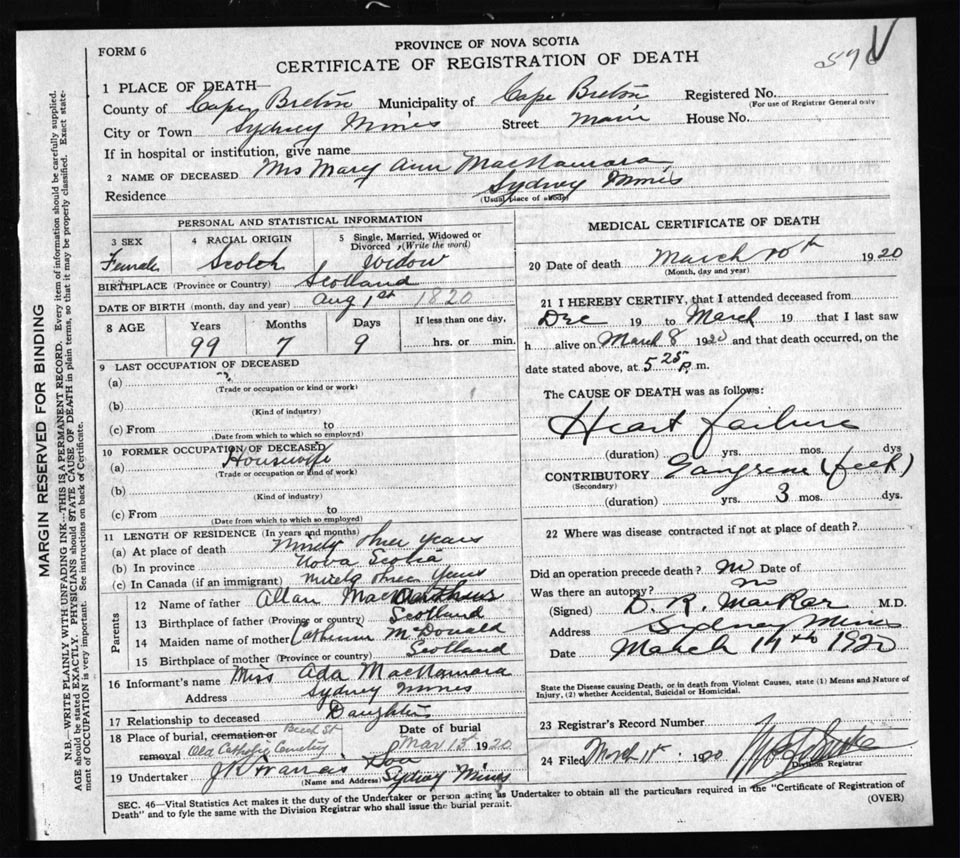 FORM 6
PROVINCE OF NOVA SCOTIA
CERTIFICATE OF REGISTRATION OF DEATH
1 PLACE OF DEATH—
County of Cape Breton Municipality of Cape Breton Registered No.
(For use of Registrar General only
City or Town Sydney Mines Street Main House No.
If in hospital or institution, give name
2 NAME OF DECEASED Mrs Mary Ann MacNamara
Residence Sydney Mines
(Usual place of abode)
PERSONAL AND STATISTICAL INFORMATION
3 SEX 4 RACIAL ORIGIN 5 Single, Married, Widowed or Divorced (Write the word)
Female Scotch Widow
BIRTHPLACE (Province or Country) Scotland
DATE OF BIRTH (month, day and year) Aug 1st 1820
8 AGE Years Months Days If less than one day,
99 7 9 hrs. or min.
9 LAST OCCUPATION OF DECEASED
(a)
(Trade or occupation or kind or work)
(b)
(Kind of industry)
(c) From to
(Date from which to which so employed)
10 FORMER OCCUPATION OF DECEASED
(a) Housewife
(Trade or occupation or kind of work)
(b)
(Kind of industry)
(c) From to
(Date from which to which so employed)
11 LENGTH OF RESIDENCE (In years and months)
(a) At place of death Ninety three years
(b) In province Nova Scotia
(c) In Canada (if an immigrant) Ninety three years
Parents
12 Name of father Allan
13 Birthplace of father (Province or country) Scotland
14 Maiden name of mother Catherine McDonald
15 Birthplace of mother (Province or country) Scotland
16 Informant's name Miss Ada MacNamara
Address Sydney Mines
17 Relationship to deceased Daughter
18 Place of burial, cremation or removal Beech St Old Catholic Cemetery Date of burial Mar 13th 1920
19 Undertaker J Francis Sydney Mines
(Name and Address)
MEDICAL CERTIFICATE OF DEATH
20 Date of death March 10th 1920
(Month, day and year)
21 I HEREBY CERTIFY, that I attended deceased from
Dec 19 to March 19 that I last saw
h alive on March 8 1920 and that death occurred, on the
date stated above, at 5.25 P.m.
The CAUSE OF DEATH was as follows:
Heart failure
(duration) yrs. mos. dys
CONTRIBUTORY Gangrene (feet)
(Secondary)
(duration) yrs. 3 mos. dys.
22 Where was disease contracted if not at place of death?
Did an operation precede death? no Date of
Was there an autopsy? no
(Signed) D. R. M.D.
Address Sydney Mines
Date March 1920
State the Disease causing Death, or in death from Violent Causes, state (1) Means and Nature of
Injury, (2) whether Accidental, Suicidal or Homicidal.
23 Registrar's Record Number
24 Filed March 11 1920
Division Registrar
SEC. 46—Vital Statistics Act makes it the duty of the Undertaker or person acting as Undertaker to obtain all the particulars required in the "Certificate of Registration of
Death" and to fyle the same with the Division Registrar who shall issue the burial permit. (OVER)
MARGIN RESERVED FOR BINDING
N.B.—WRITE PLAINLY WITH UNFADING INK—THIS IS A PERMANENT RECORD. Every item of information should be carefully supplied.
AGE should be stated EXACTLY. PHYSICIANS should STATE CAUSE OF DEATH in plain terms, so that it may be properly classified. Exact state-
ment of OCCUPATION is very important. See instructions on back of Certificate.